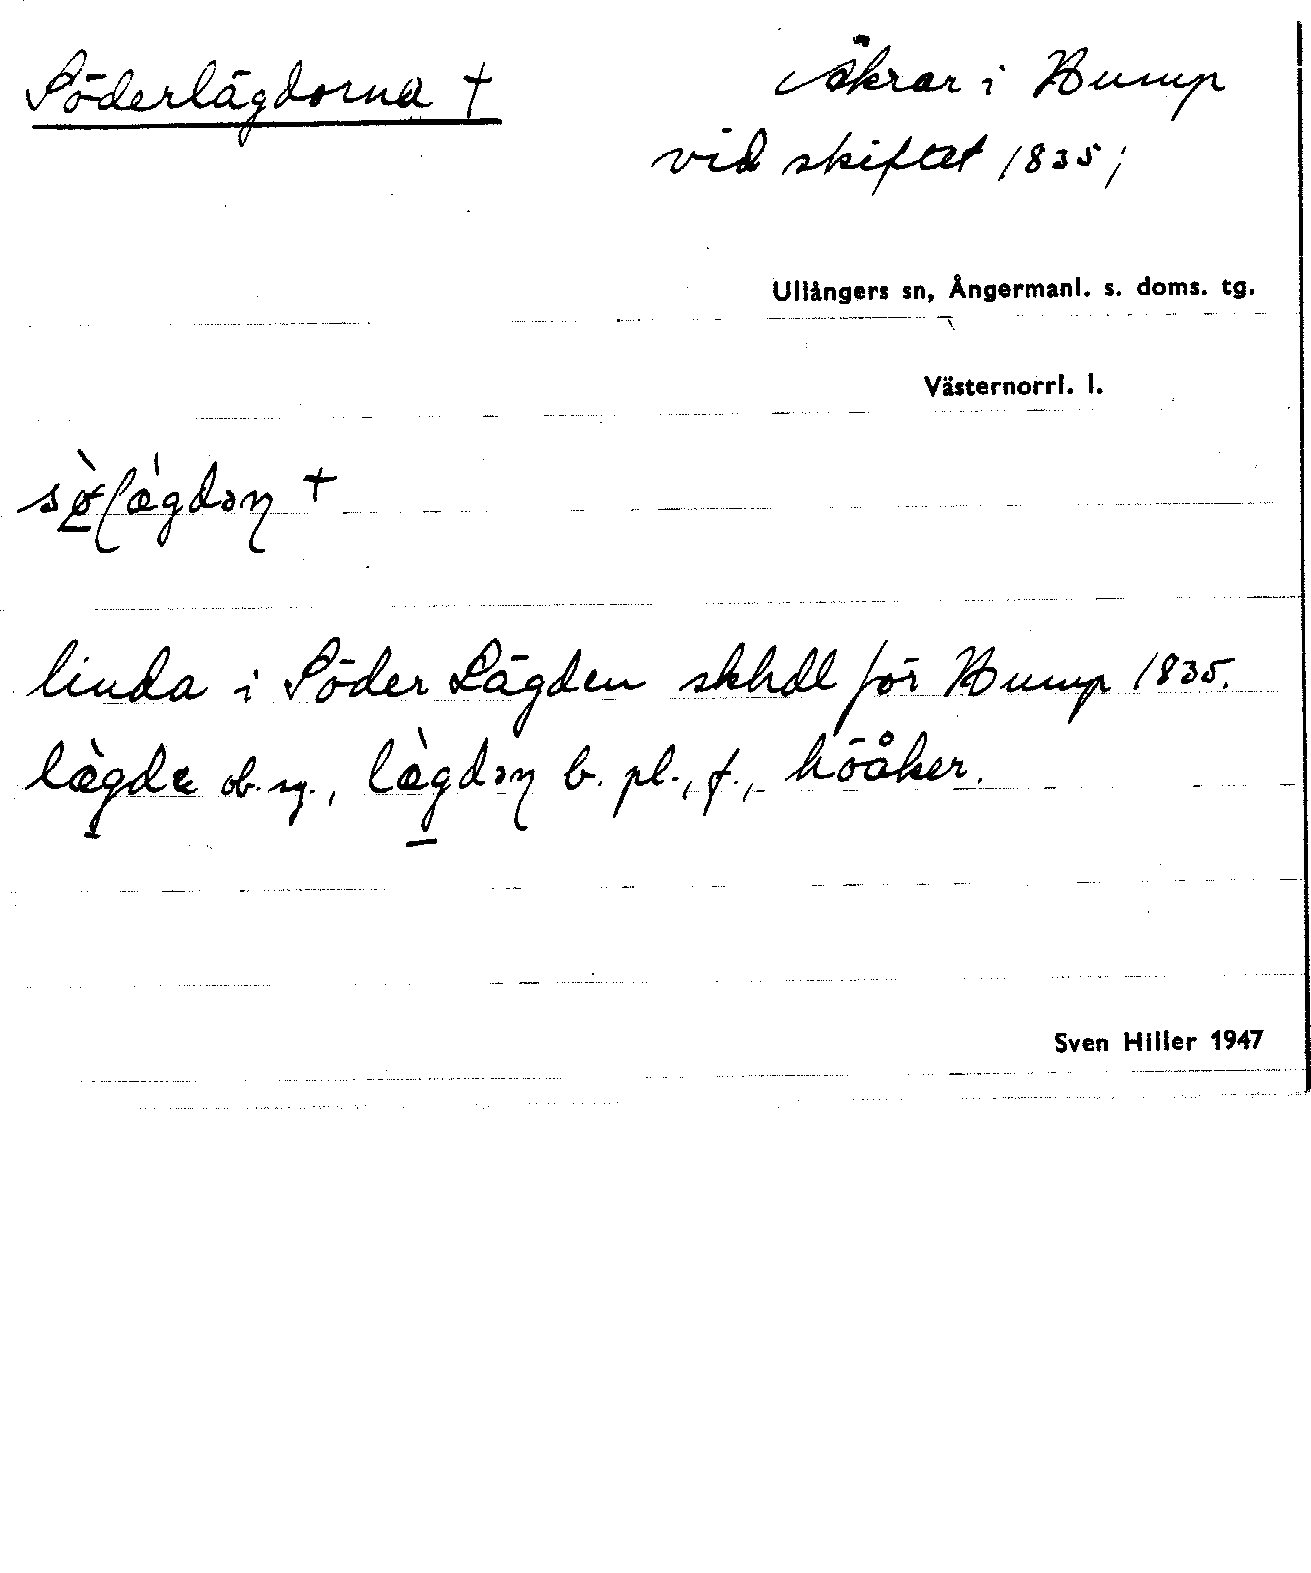 Söderlägdorna †
Åkrar i Bump
vid skiftet 1835;
Ullångers sn, Ångermanl. s. doms. tg.
Västernorrl. l.
†
linda i Söder Lägden skhdl för Bump 1835.
ob. sg., b. pl., f., höåker.
Sven Hiller 1947